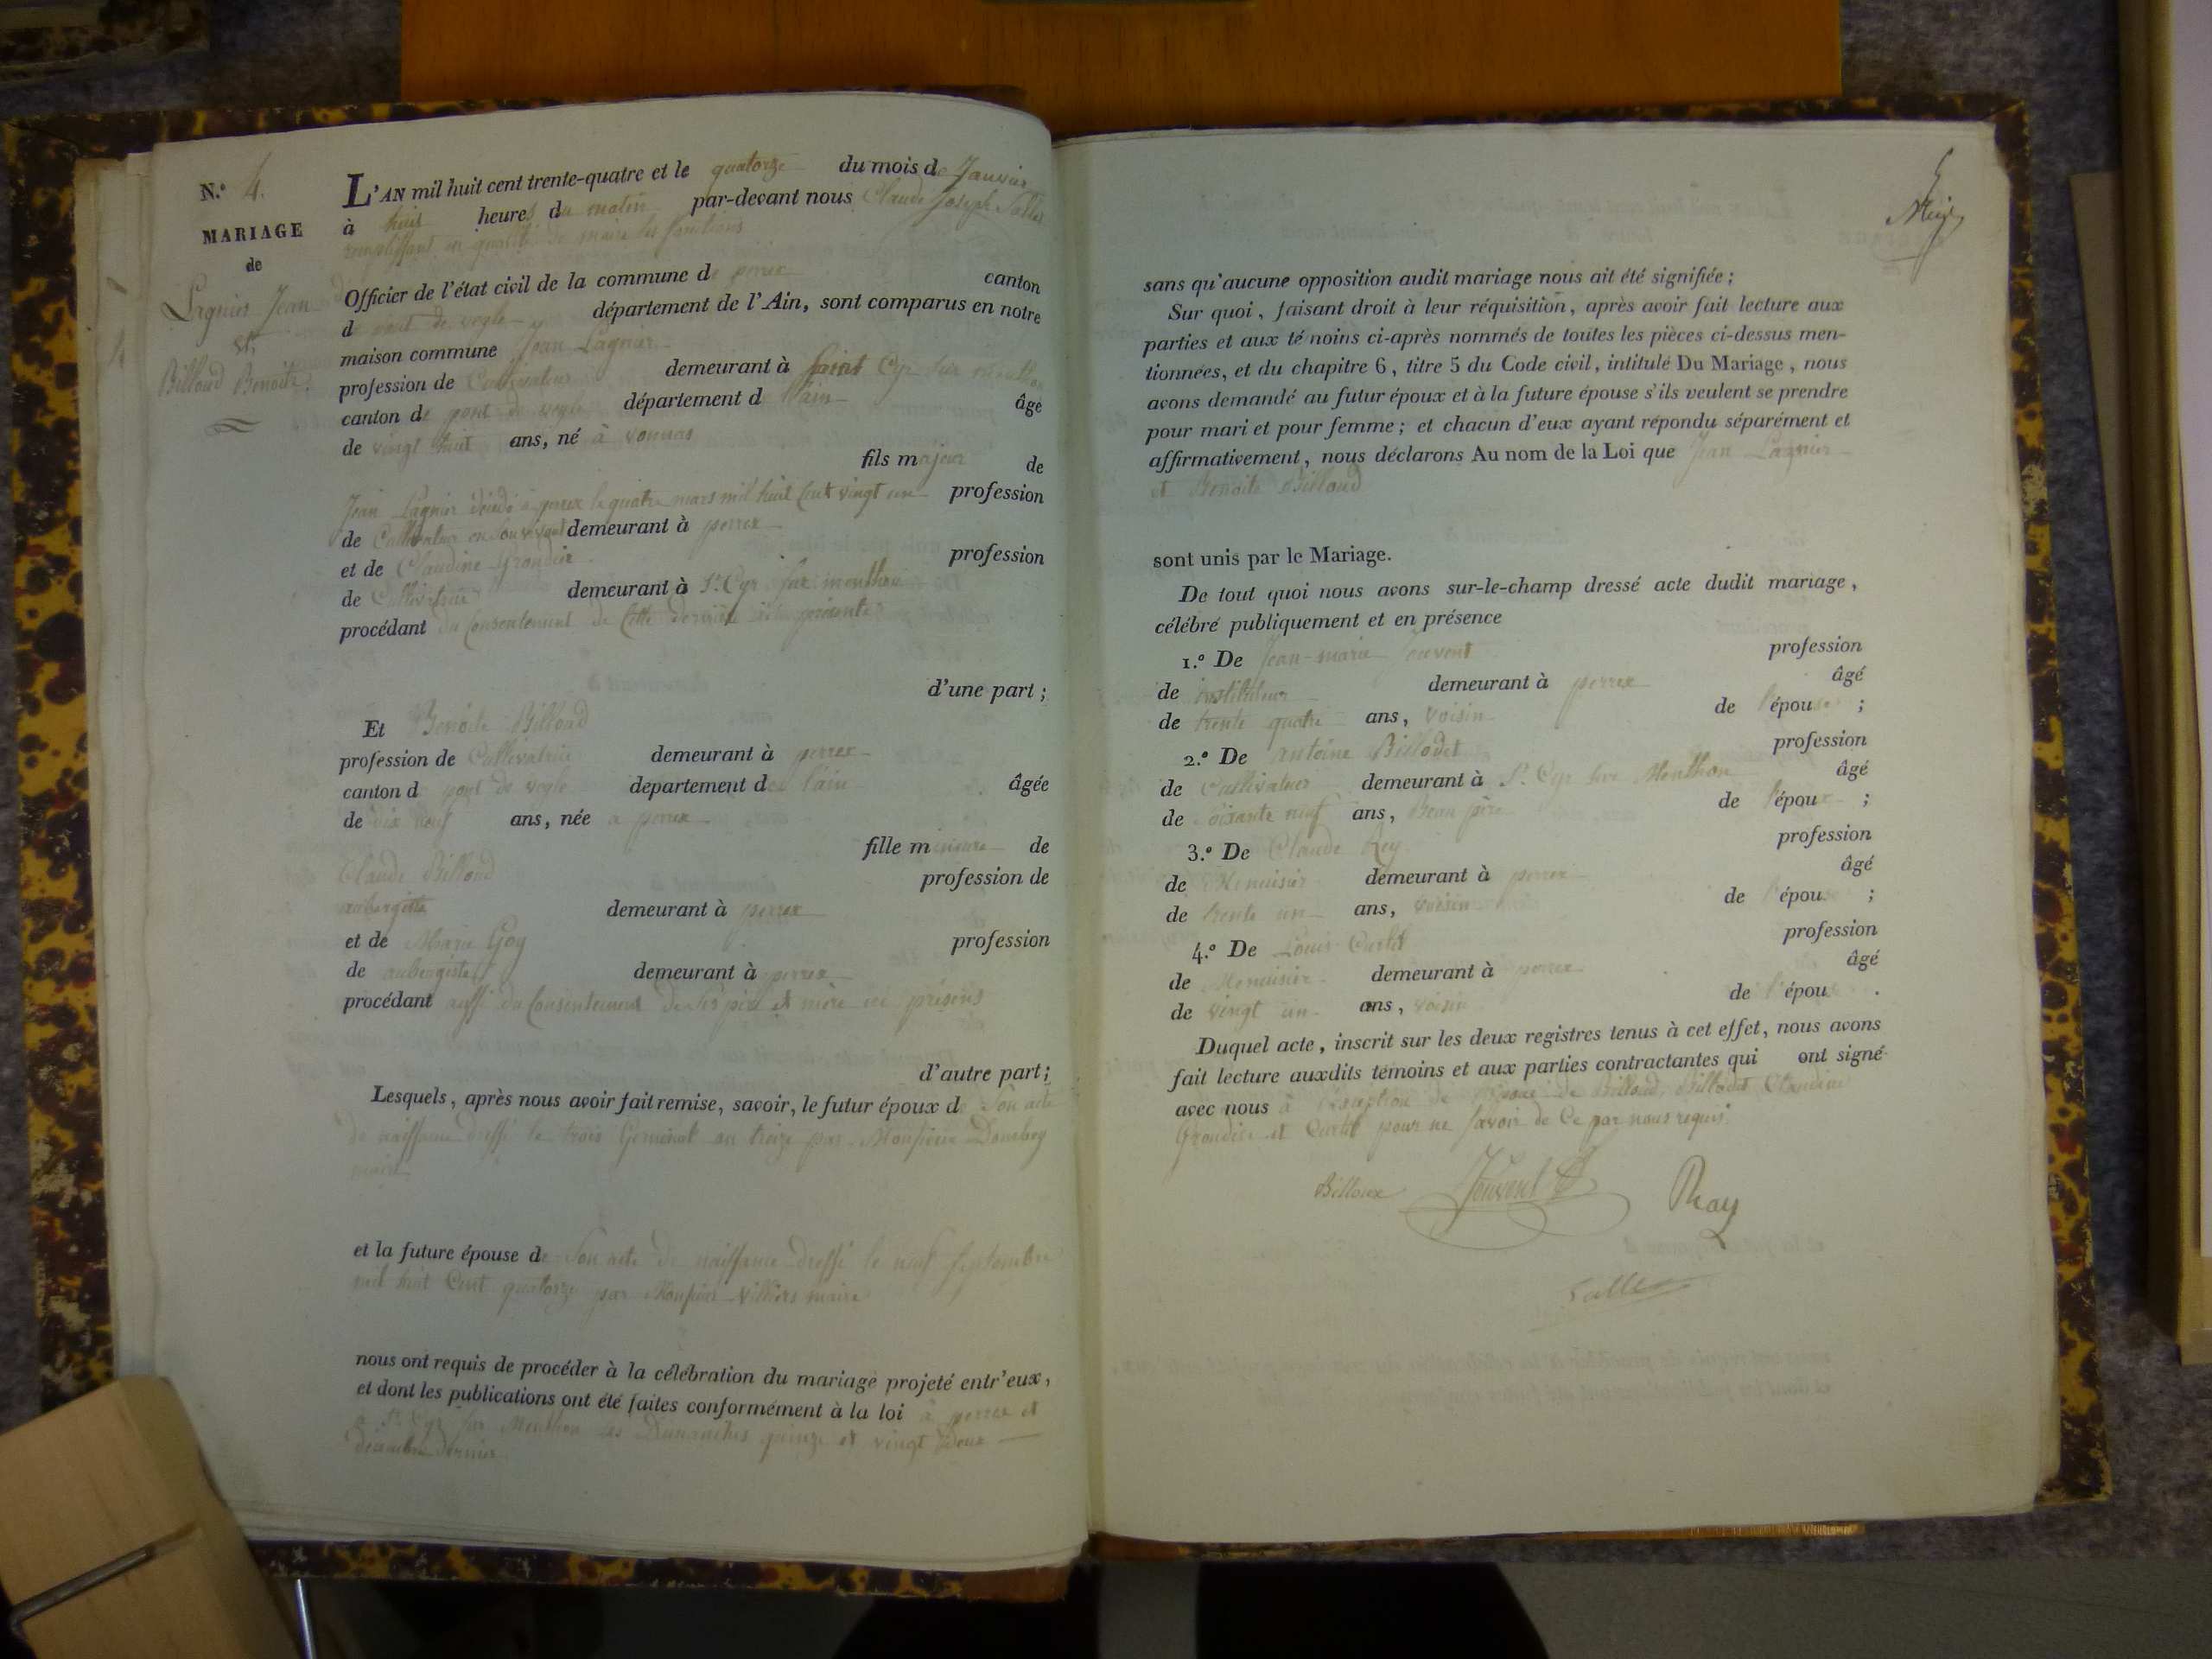 N.° 4.
MARIAGE
de
Lagnier Jean
et
Billoud Benoite.
L'AN mil huit cent trente-quatre et le quatorze du mois de Janvier
à huit heures du matin par-devant nous Claude Joseph Salles
remplissant en qualité de maire les fonctions
Officier de l'état civil de la commune de perrex canton
d pont de veyle département de l'Ain, sont comparus en notre
maison commune Jean Lagnier
profession de Cultivateur demeurant à Saint Cyr sur menthon
canton de pont de veyle département d l'ain âgé
de vingt huit ans, né à vonnas
fils majeur de
Jean Lagnier décédé à perrex le quatre mars mil huit Cent vingt un profession
de Cultivateur en son vivant demeurant à perrex
et de Claudine Grandier profession
de Cultivatrice demeurant à St. Cyr sur menthon
procédant du Consentement de Cette dernière ici présente
d'une part ;
Et Benoite Billoud
profession de Cultivatrice demeurant à perrex
canton d pont de veyle departement de l'ain âgée
de dix neuf ans, née à perrex
fille mineure de
Claude Billoud profession de
aubergiste demeurant à perrex
et de Marie Goy profession
de aubergiste demeurant à perrex
procédant aussi du Consentement de ses père et mère ici présens
d'autre part ;
Lesquels, après nous avoir fait remise, savoir, le futur époux de Son acte
de naissance dressé le trois Germinal an treize par Monsieur
maire
et la future épouse de Son acte de naissance dressé le neuf Septembre
mil huit Cent quatorze par Monsieur Villiers maire
nous ont requis de procéder à la célébration du mariage projeté entr'eux,
et dont les publications ont été faites conformément à la loi à perrex et
à St. Cyr sur Menthon les Dimanches quinze et vingt Deux
décembre dernier
sans qu'aucune opposition audit mariage nous ait été signifiée ;
Sur quoi, faisant droit à leur réquisition, après avoir fait lecture aux
parties et aux témoins ci-après nommés de toutes les pièces ci-dessus men-
tionnées, et du chapitre 6, titre 5 du Code civil, intitulé Du Mariage, nous
avons demandé au futur époux et à la future épouse s'ils veulent se prendre
pour mari et pour femme ; et chacun d'eux ayant répondu séparément et
affirmativement, nous déclarons Au nom de la Loi que Jean Lagnier
et Benoite Billoud
sont unis par le Mariage.
De tout quoi nous avons sur-le-champ dressé acte dudit mariage,
célébré publiquement et en présence
1.° De Jean-marie Jouvent profession
de instituteur demeurant à perrex âgé
de trente quatre ans, voisin de l'épouse ;
2.° De antoine Billodet profession
de Cultivateur demeurant à St. Cyr sur Menthon âgé
de Soixante neuf ans, Beau père de l'époux ;
3.° De Claude Rey profession
de Menuisier demeurant à perrex âgé
de trente un ans, voisin de l'épouse ;
4.° De Louis Curtet profession
de Menuisier demeurant à perrex âgé
de vingt un ans, voisin de l'épouse .
Duquel acte, inscrit sur les deux registres tenus à cet effet, nous avons
fait lecture auxdits témoins et aux parties contractantes qui ont signé
avec nous à l'exception de Billoud, Billodet Claudine
Grandier et Curtet pour ne Savoir de Ce par nous requis
Billoux Jouvent Ray
Salles